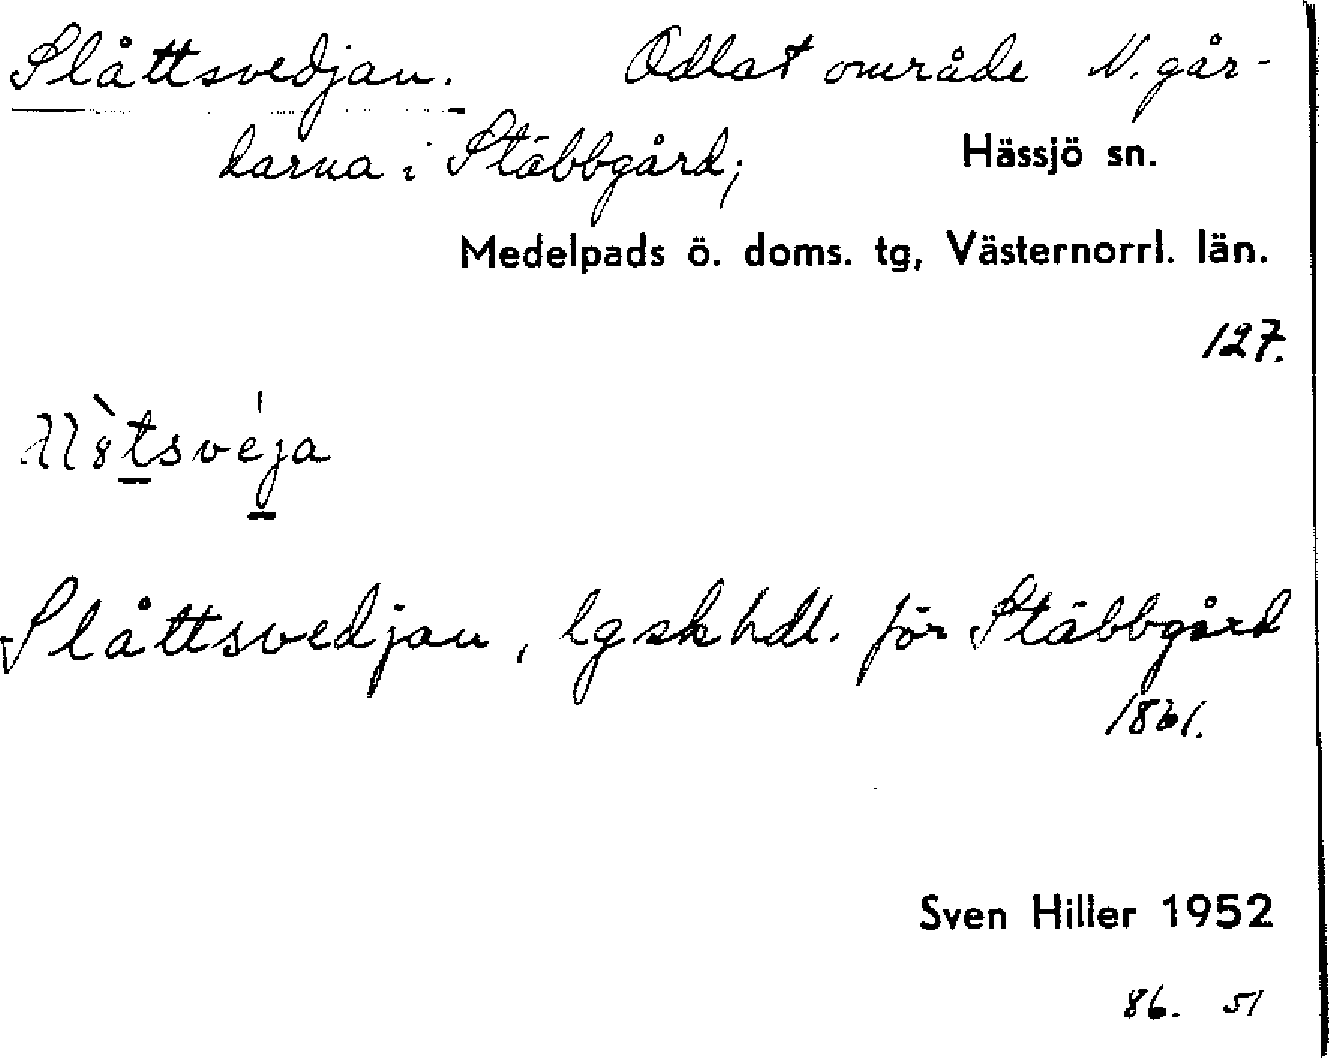 Slåttsvedjan. Odlat område N. går-
darna i Stäbbgård; Hässjö sn.
Medelpads ö. doms. tg, Västernorrl. län.
127.
Slåttsvedjan, lgskhdl. för Stäbbgård
1861.
Sven Hiller 1952
86. 51